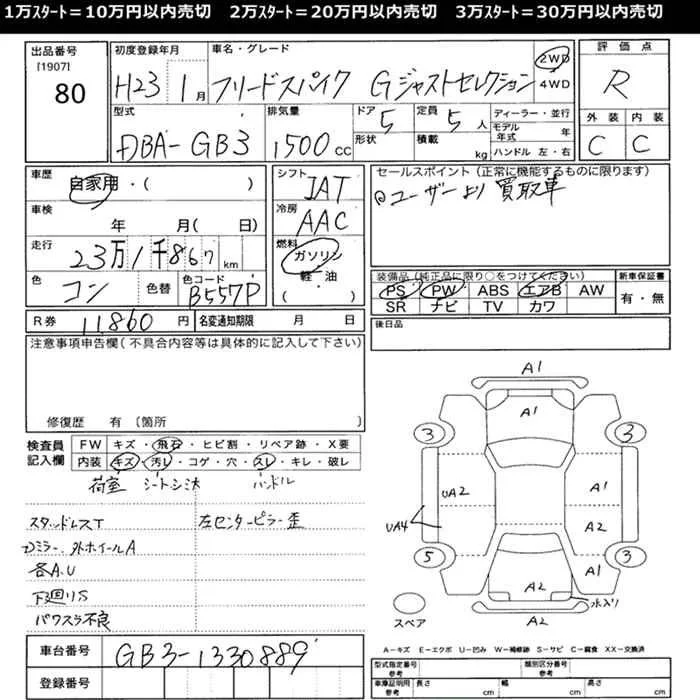 1万ｽﾀｰﾄ＝10万円以内売切　2万ｽﾀｰﾄ＝20万円以内売切　3万ｽﾀｰﾄ＝30万円以内売切
出品番号 [1907] 80
初度登録年月 H23 1月
車名・グレード フリードスパイク Gジャストセレクション 2WD 4WD
評価点 R
外装 内装
C C
型式 DBA-GB3
排気量 1500 cc
ドア 5 形状
定員 5人 積載 kg
ディーラー・並行
モデル年式 年
ハンドル 左・右
車歴 自家用・( )
シフト IAT
冷房 AAC
燃料 ガソリン 軽・油 ( )
車検 年 月( 日)
走行 23万1千867 km
色 コン 色替 色コード B557P
R券 11860円 名変通知期限 月 日
セールスポイント (正常に機能するものに限ります)
ユーザーより買取車
装備品 (純正品に限り○をつけてください)
PS PW ABS エアB AW
SR ナビ TV カワ
新車保証書 有・無
後日品
注意事項申告欄 (不具合内容等は具体的に記入して下さい)
修復歴 有 (箇所 )
検査員記入欄
FW キズ・飛石・ヒビ割・リペア跡・X要
内装 キズ・汚レ・コゲ・穴・スレ・キレ・破レ
荷室 シートシミ大 ハンドル
スタッドレスT 左センターピラー歪
Dミラー、外ホイールA
各A、U
下廻りS
パワスラ不良
車台番号 GB3-1330889
登録番号
A1
A1
3 3
UA2 A1
UA4 A2
5 3
A1
A2
水入リ
スペア A2
A－キズ E－エクボ U－凹み W－補修跡 S－サビ C－腐食 XX－交換済
型式指定番号 参考 類別区分番号 参考
車庫証明用 参考 長さ cm 幅 cm 高さ cm